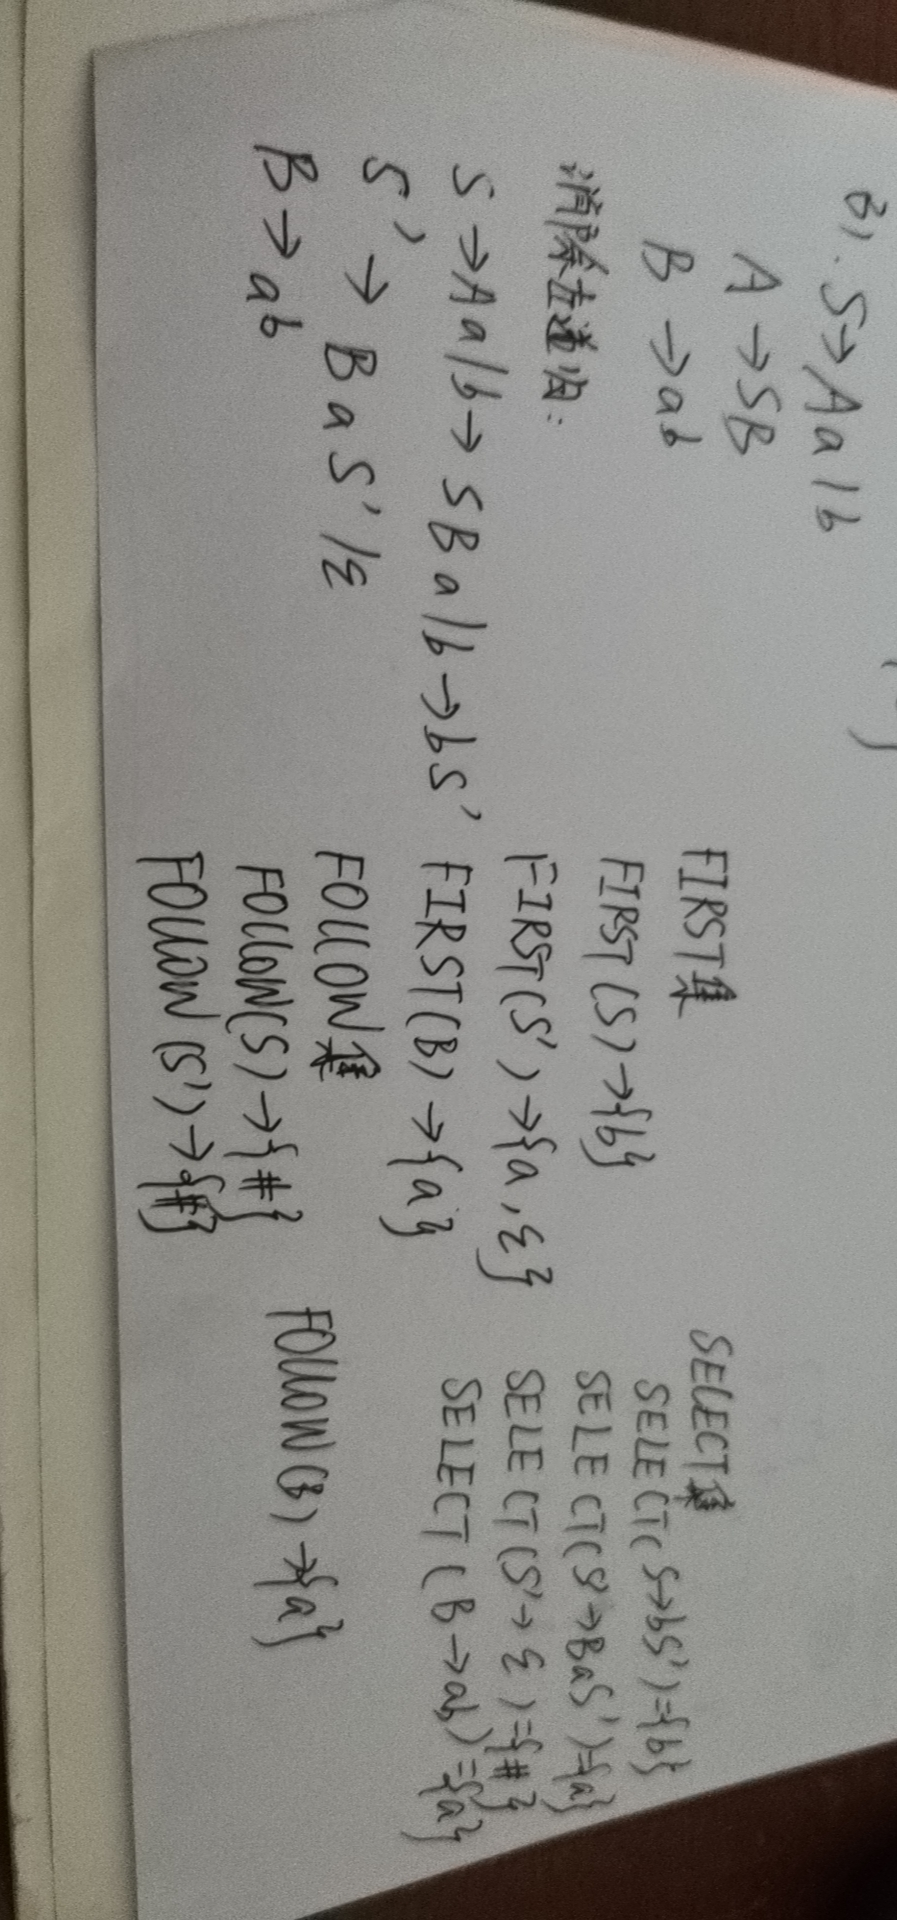 (3). S→Aa|b
A→SB
B→ab
消除左递归:
S→Aa|b→SBa|b→bS'
S'→BaS'|ε
B→ab
FIRST集
FIRST(S)→{b}
FIRST(S')→{a,ε}
FIRST(B)→{a}
FOLLOW集
FOLLOW(S)→{#}
FOLLOW(S')→{#}
FOLLOW(B)→{a}
SELECT集
SELECT(S→bS')={b}
SELECT(S'→BaS')={a}
SELECT(S'→ε)={#}
SELECT(B→ab)={a}